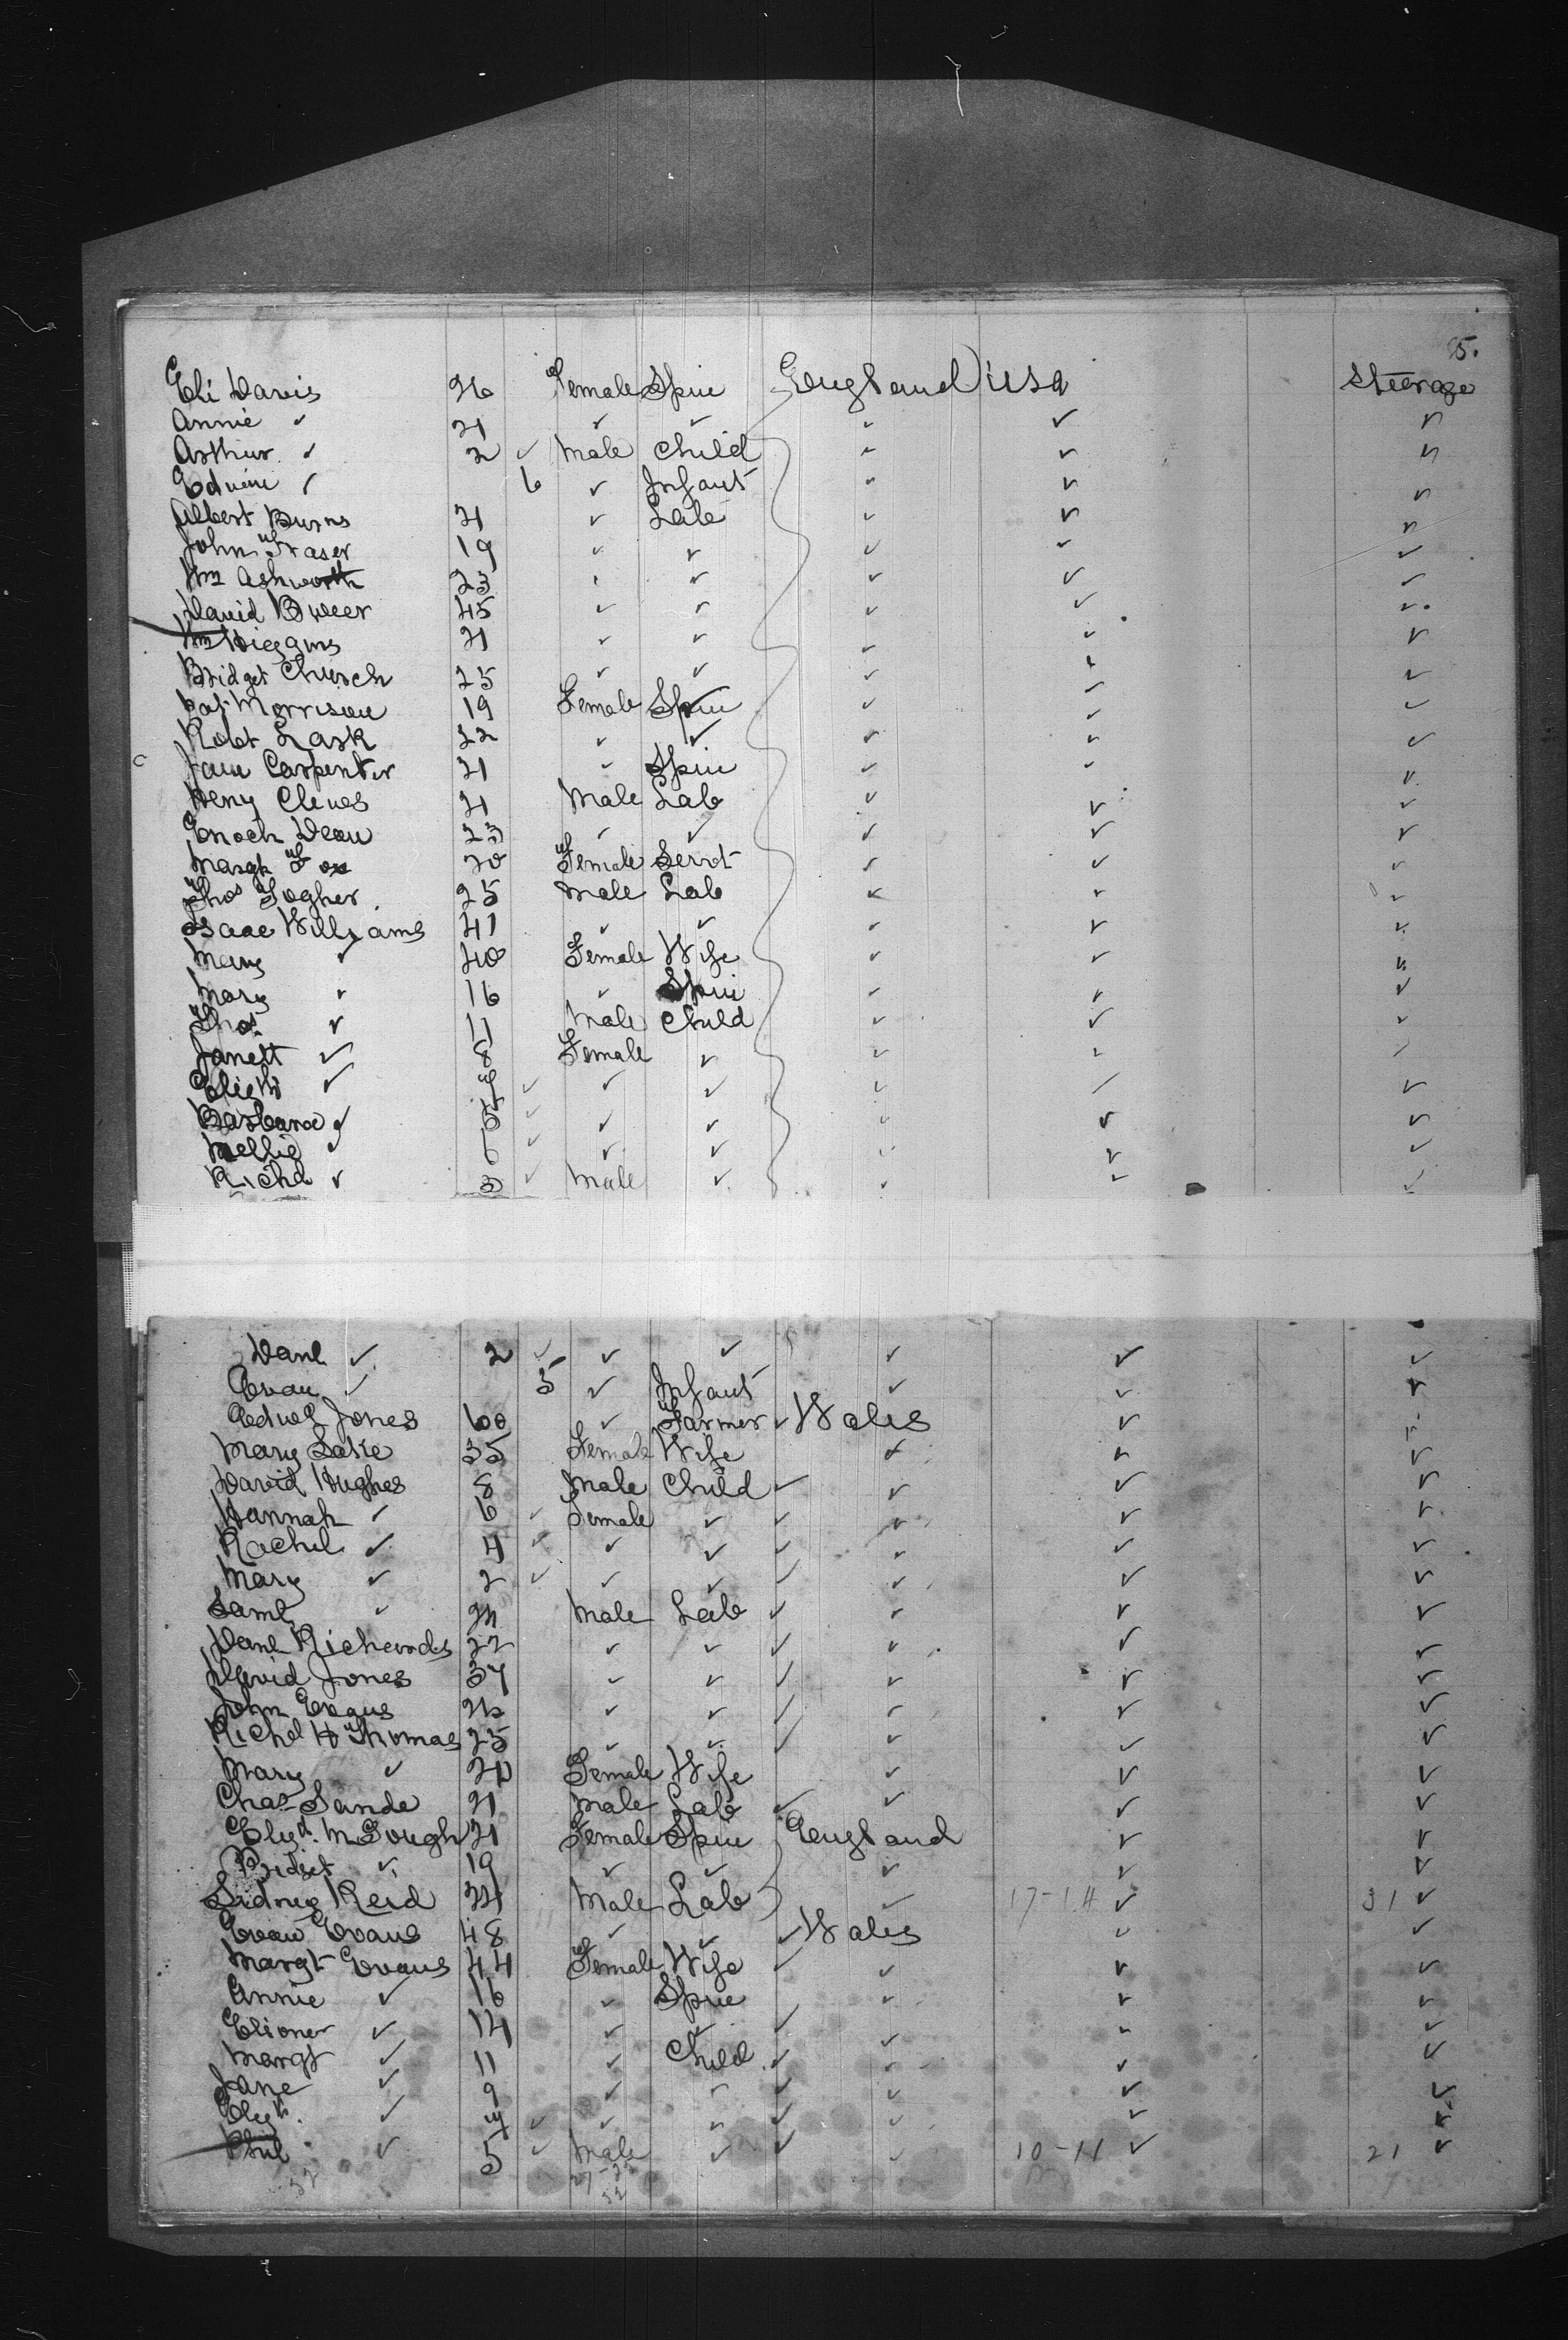 95.
Eli Davis 26 Female Spin England USA Steerage
Annie ✓ 21 ✓ ✓ ✓ ✓ ✓
Arthur ✓ 2 ✓ Male Child ✓ ✓ ✓
Edwin ✓ 6 ✓ Infant ✓ ✓ ✓
Albert Burns 21 ✓ Lab ✓ ✓ ✓
John Fraser 19 ✓ ✓ ✓ ✓ ✓
Wm Ashworth 23 ✓ ✓ ✓ ✓ ✓
David 45 ✓ ✓ ✓ ✓ ✓
Wm Higgins 21 ✓ ✓ ✓ ✓ ✓
Bridget Church 25 ✓ ✓ ✓ ✓ ✓
Pat Morrison 19 Female Spin ✓ ✓ ✓
Robt Lask 22 ✓ ✓ ✓ ✓ ✓
Jane Carpenter 21 ✓ Spin ✓ ✓ ✓
Henry Clewes 21 Male Lab ✓ ✓ ✓
Enoch Dean 23 ✓ ✓ ✓ ✓ ✓
Margt Fox 20 Female Servt ✓ ✓ ✓
Thos Togher 25 Male Lab ✓ ✓ ✓
Isaac Williams 41 ✓ ✓ ✓ ✓ ✓
Mary ✓ 40 Female Wife ✓ ✓ ✓
Mary ✓ 16 ✓ Spin ✓ ✓ ✓
Thos ✓ 11 Male Child ✓ ✓ ✓
Janett ✓ 8 Female ✓ ✓ ✓ ✓
Elizth ✓ 7 ✓ ✓ ✓ ✓ ✓ ✓
Barbara ✓ 5 ✓ ✓ ✓ ✓ ✓ ✓
Nellie ✓ 6 ✓ ✓ ✓ ✓ ✓ ✓
Richd ✓ 3 ✓ Male ✓ ✓ ✓ ✓
Danl ✓ 2 ✓ ✓ ✓ ✓ ✓ ✓
Evan ✓ 5 ✓ Infant ✓ ✓ ✓
Edwd Jones 60 ✓ Farmer ✓ Wales ✓ ✓
Mary Lake 35 Female Wife ✓ ✓ ✓
David Hughes 8 Male Child ✓ ✓ ✓ ✓
Hannah ✓ 6 ✓ Female ✓ ✓ ✓ ✓ ✓
Rachel ✓ 4 ✓ ✓ ✓ ✓ ✓ ✓ ✓
Mary ✓ 2 ✓ ✓ ✓ ✓ ✓ ✓ ✓
Saml ✓ 24 Male Lab ✓ ✓ ✓ ✓
Danl Richards 22 ✓ ✓ ✓ ✓ ✓ ✓
David Jones 37 ✓ ✓ ✓ ✓ ✓ ✓
John Evans 26 ✓ ✓ ✓ ✓ ✓ ✓
Richd H Thomas 25 ✓ ✓ ✓ ✓ ✓ ✓
Mary ✓ 20 Female Wife ✓ ✓ ✓
Chas Sande 21 Male Lab ✓ ✓ ✓ ✓
Elizth McGough 21 Female Spin England ✓ ✓
Bridget ✓ 19 ✓ ✓ ✓ ✓ ✓
Sidney Reid 24 Male Lab ✓ 17-14 ✓ 31 ✓
Evan Evans 48 ✓ ✓ ✓ Wales ✓ ✓
Margt Evans 44 Female Wife ✓ ✓ ✓ ✓
Annie ✓ 16 ✓ Spin ✓ ✓ ✓
Elioner ✓ 14 ✓ ✓ ✓ ✓ ✓ ✓
Margt ✓ 11 ✓ Child ✓ ✓ ✓ ✓
Jane ✓ 9 ✓ ✓ ✓ ✓ ✓ ✓
Elizth ✓ 7 ✓ ✓ ✓ ✓ ✓ ✓ ✓
Phil ✓ 5 ✓ Male ✓ ✓ ✓ 10-11 ✓ 21 ✓
52 27-25
52